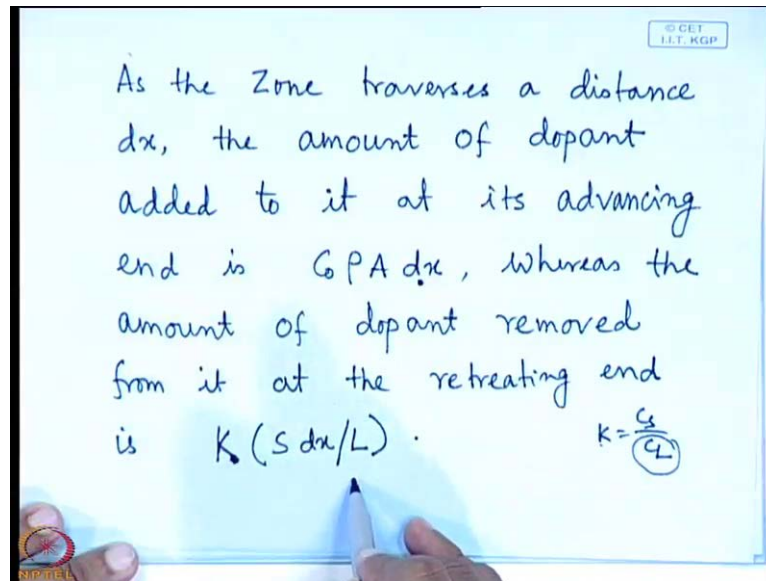 © CET
I.I.T. KGP
As the Zone traverses a distance
dx, the amount of dopant
added to it at its advancing
end is C₀ρA dx, whereas the
amount of dopant removed
from it at the retreating end
is K (S dx/L) .
K = Cs/CL
NPTEL